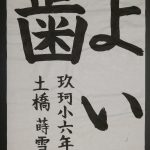 よい
歯
玖珂小六年
土橋蒔雪